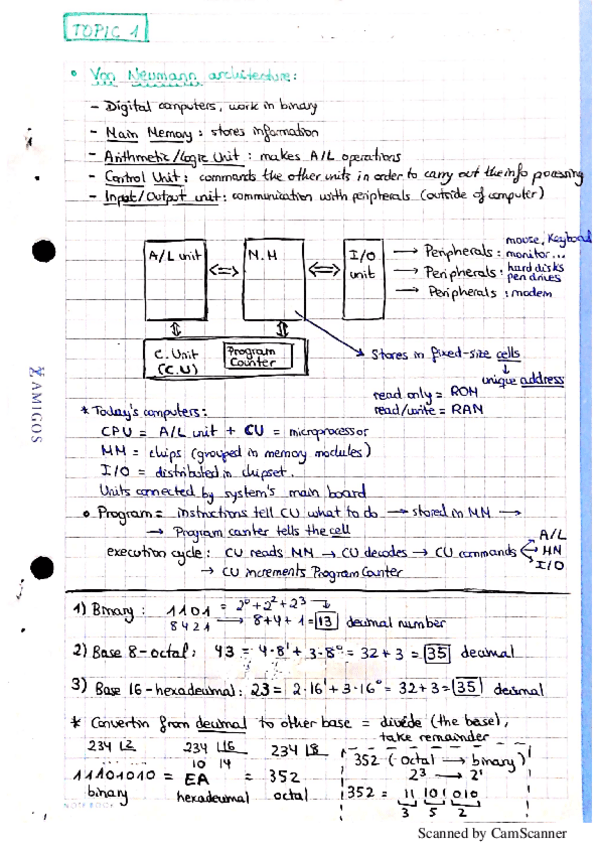 TOPIC 1
• Von Neumann architecture:
- Digital computers, work in binary
- Main Memory: stores information
- Arithmetic/Logic Unit: makes A/L operations
- Control Unit: commands the other units in order to carry out the info pocessing
- Input/Output unit: communication with peripherals (outside of computer)
A/L unit ⟺ M.M ⟺ I/O unit
→ Peripherals: mouse, Keyboard monitor...
→ Peripherals: hard disks pendrives
→ Peripherals: modem
C. Unit (C.U) Program Counter
→ Stores in fixed-size cells
↓
unique address
read only = ROM
read/write = RAM
* Today's computers:
CPU = A/L unit + CU = microprocessor
MM = chips (grouped in memory modules)
I/O = distributed in chipset.
Units connected by system's main board
• Program = instructions tell CU what to do → stored in MM →
→ Program canter tells the cell
execution cycle: CU reads MM → CU decodes → CU commands A/L MM I/O
→ CU increments Program Conter
1) Binary: 1101 = 2⁰+2²+2³
8421 → 8+4+1=13 decimal number
2) Base 8-octal: 43 = 4·8¹ + 3·8⁰ = 32+3 = 35 decimal
3) Base 16-hexadecimal: 23 = 2·16¹ + 3·16⁰ = 32+3 = 35 decimal
* Convertin from decimal to other base = divide (the base), take remainder
234 |2 ... 234 |16 234 |8 ...
10 14
11101010 = EA = 352
binary hexadecimal octal
352 (octal → binary)
2³ → 2¹
352 = 11 101 010
3 5 2
AMIGOS
NOTEBOOK
Scanned by CamScanner